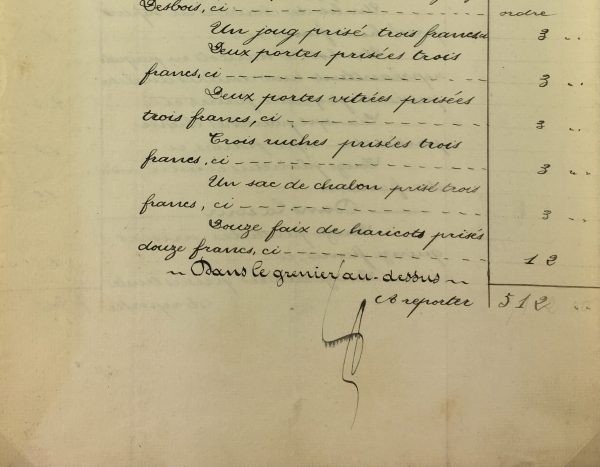 Desbois, ci - - - - - - - - - - - - - - - - - ordre
Un joug prisé trois francs, ci 3 " "
Deux portes prisées trois
francs, ci - - - - - - - - - - - - - - - - - - 3 " "
Deux portes vitrées prisées
trois francs, ci - - - - - - - - - - - - - - 3 " "
Trois ruches prisées trois
francs, ci - - - - - - - - - - - - - - - - - - 3 " "
Un sac de chalon prisé trois
francs, ci - - - - - - - - - - - - - - - - - - 3 " "
Douze faix de haricots prisés
douze francs, ci - - - - - - - - - - - - - - 12
~ Dans le grenier au-dessus ~
A reporter 512 " "